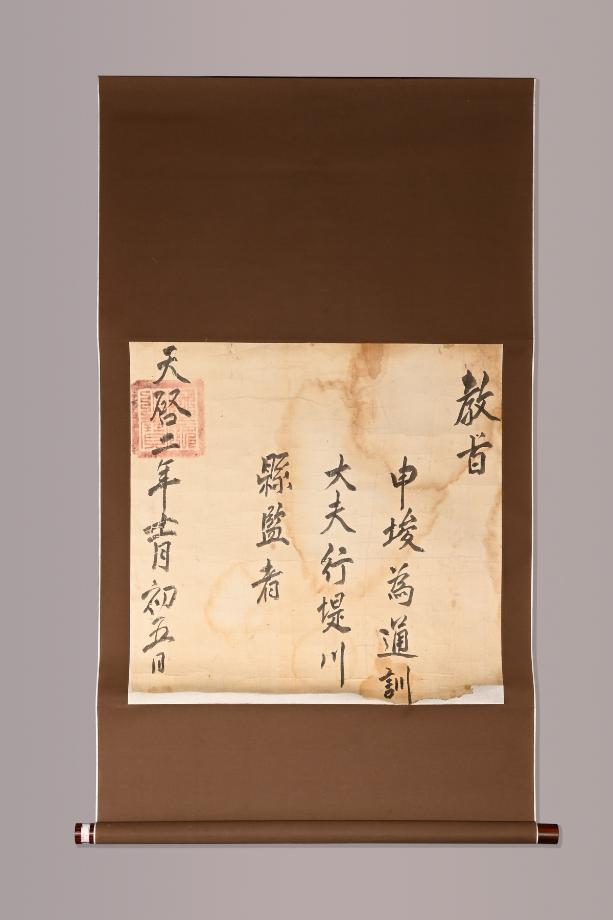 教旨
申埈為通訓
大夫行堤川
縣監者
天啓二年月初五日